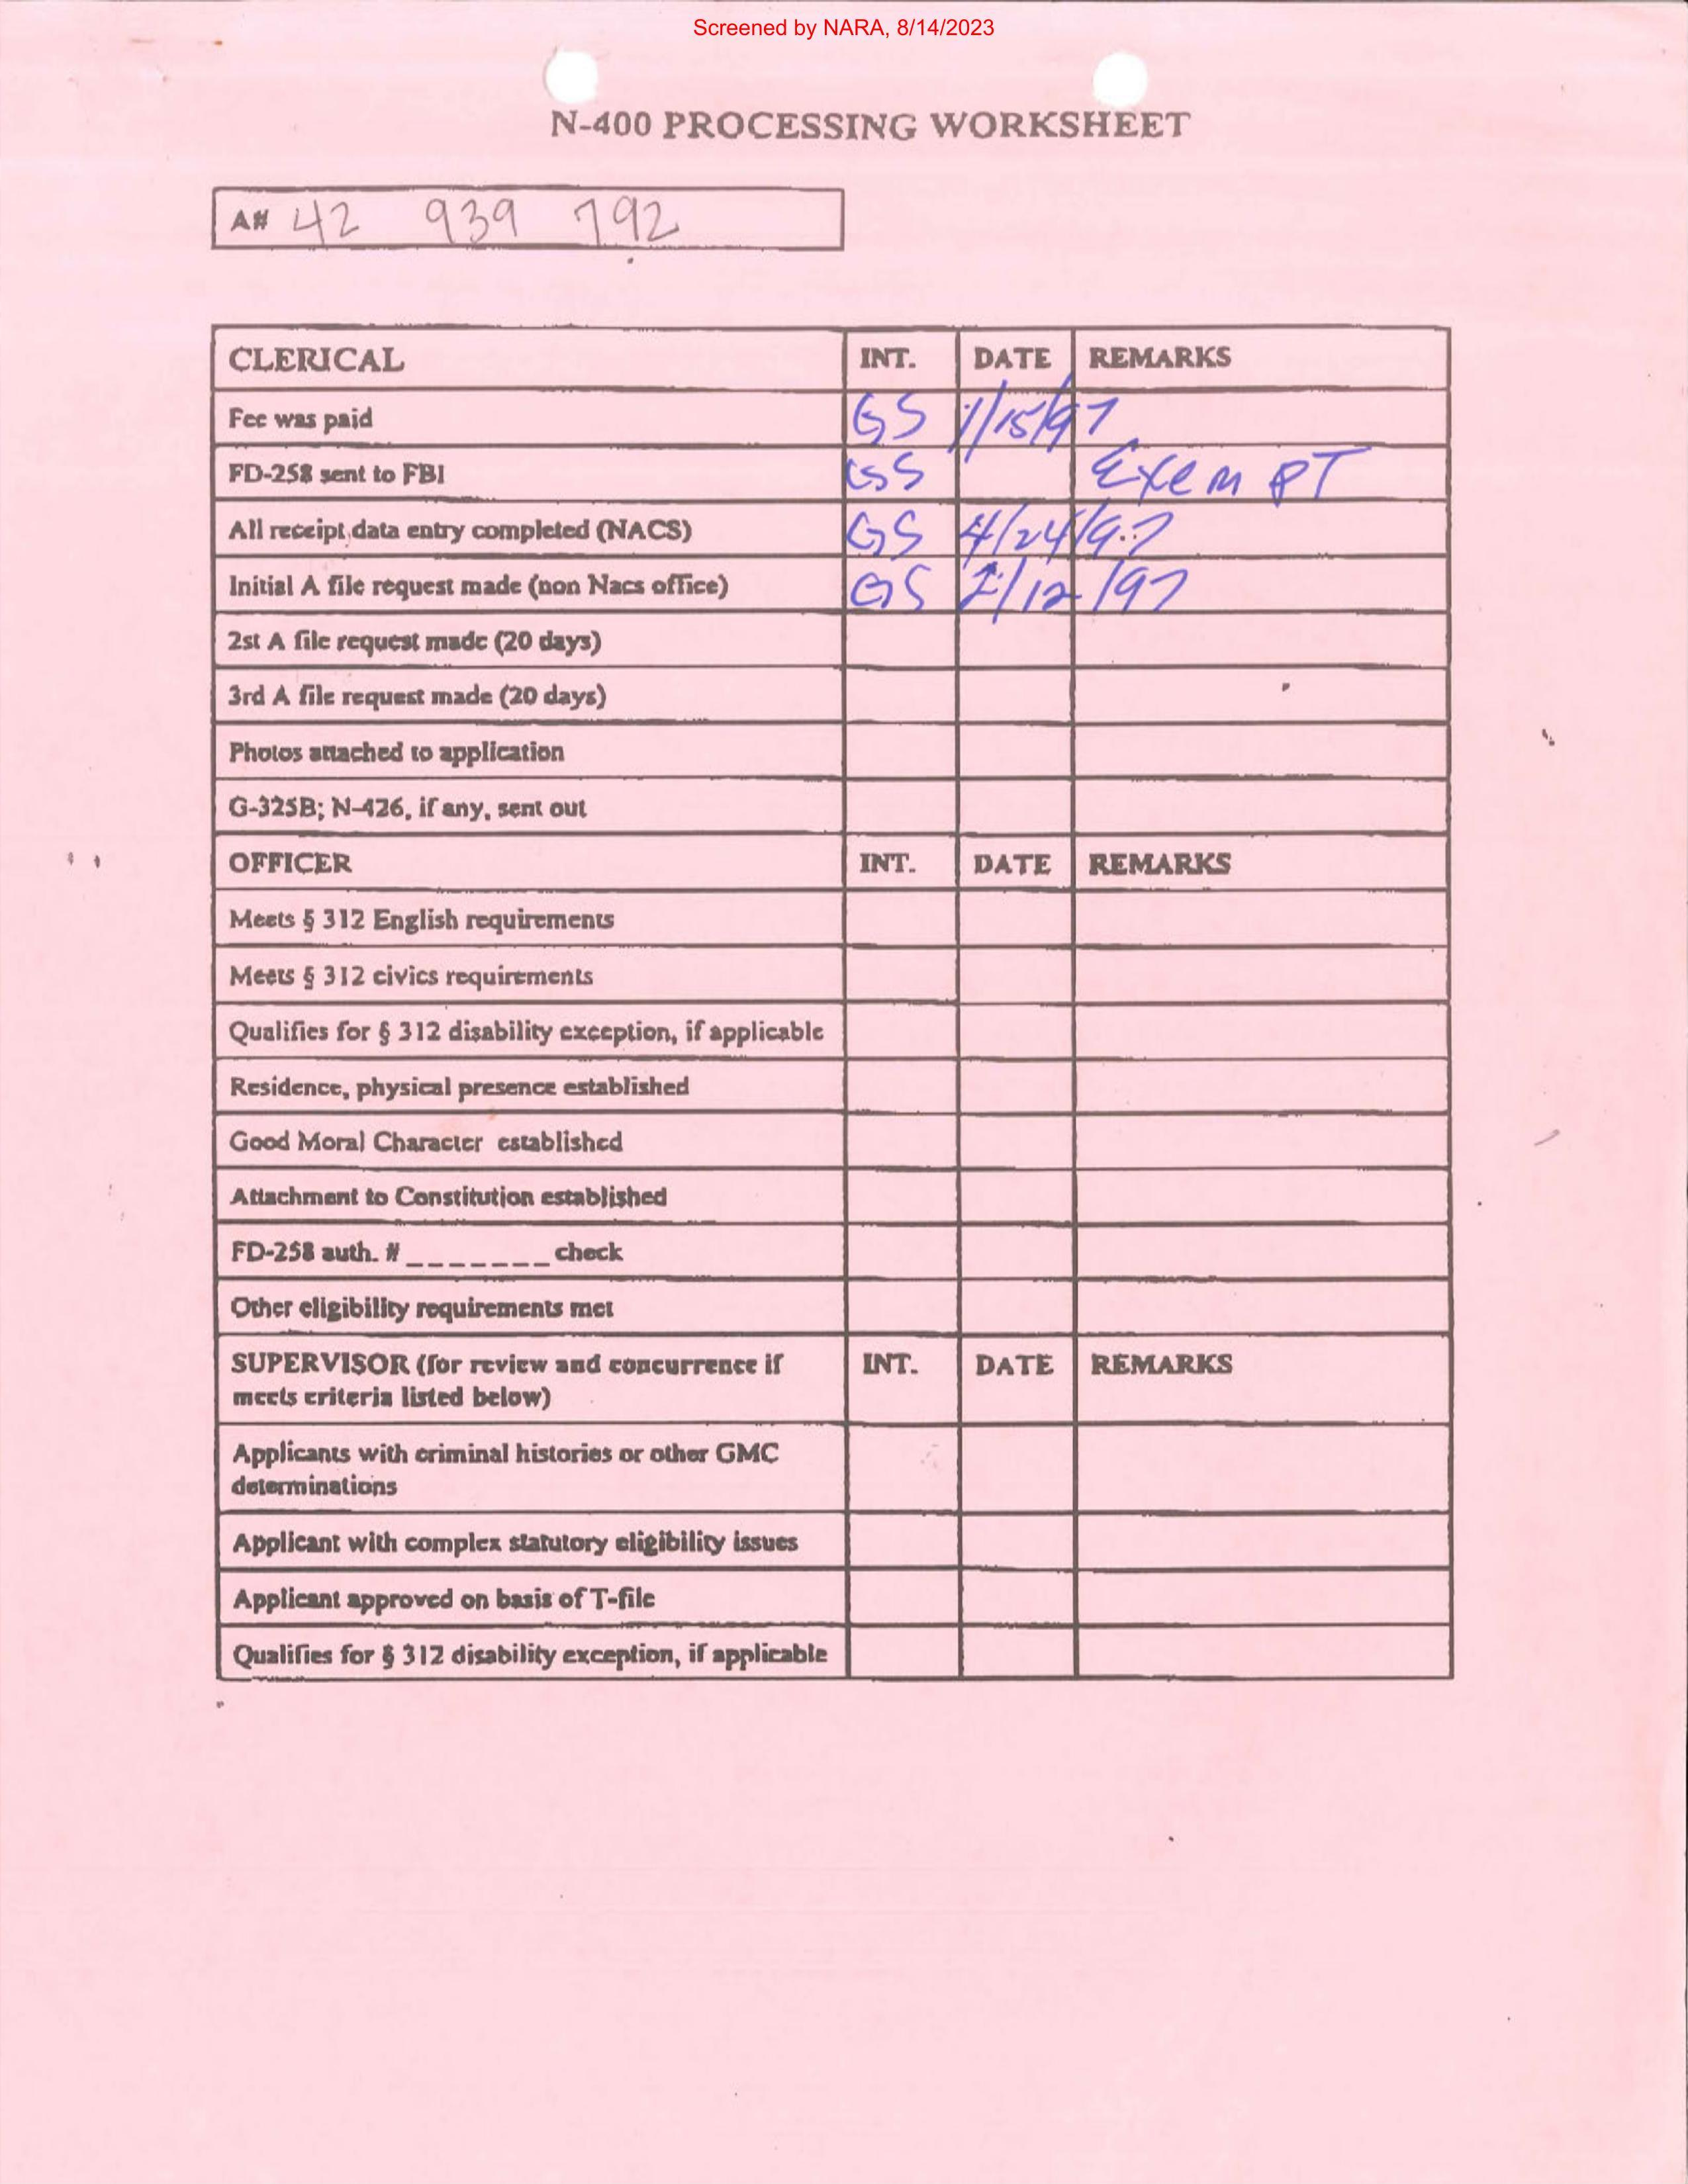 Screened by NARA, 8/14/2023
N-400 PROCESSING WORKSHEET
A# 42 939 792
CLERICAL INT. DATE REMARKS
Fee was paid GS 1/15/97
FD-258 sent to FBI GS Exempt
All receipt data entry completed (NACS) GS 4/24/97
Initial A file request made (non Nacs office) GS /12/97
2st A file request made (20 days)
3rd A file request made (20 days)
Photos attached to application
G-325B; N-426, if any, sent out
OFFICER INT. DATE REMARKS
Meets § 312 English requirements
Meets § 312 civics requirements
Qualifies for § 312 disability exception, if applicable
Residence, physical presence established
Good Moral Character established
Attachment to Constitution established
FD-258 auth. # _______ check
Other eligibility requirements met
SUPERVISOR (for review and concurrence if INT. DATE REMARKS
meets criteria listed below)
Applicants with criminal histories or other GMC
determinations
Applicant with complex statutory eligibility issues
Applicant approved on basis of T-file
Qualifies for § 312 disability exception, if applicable